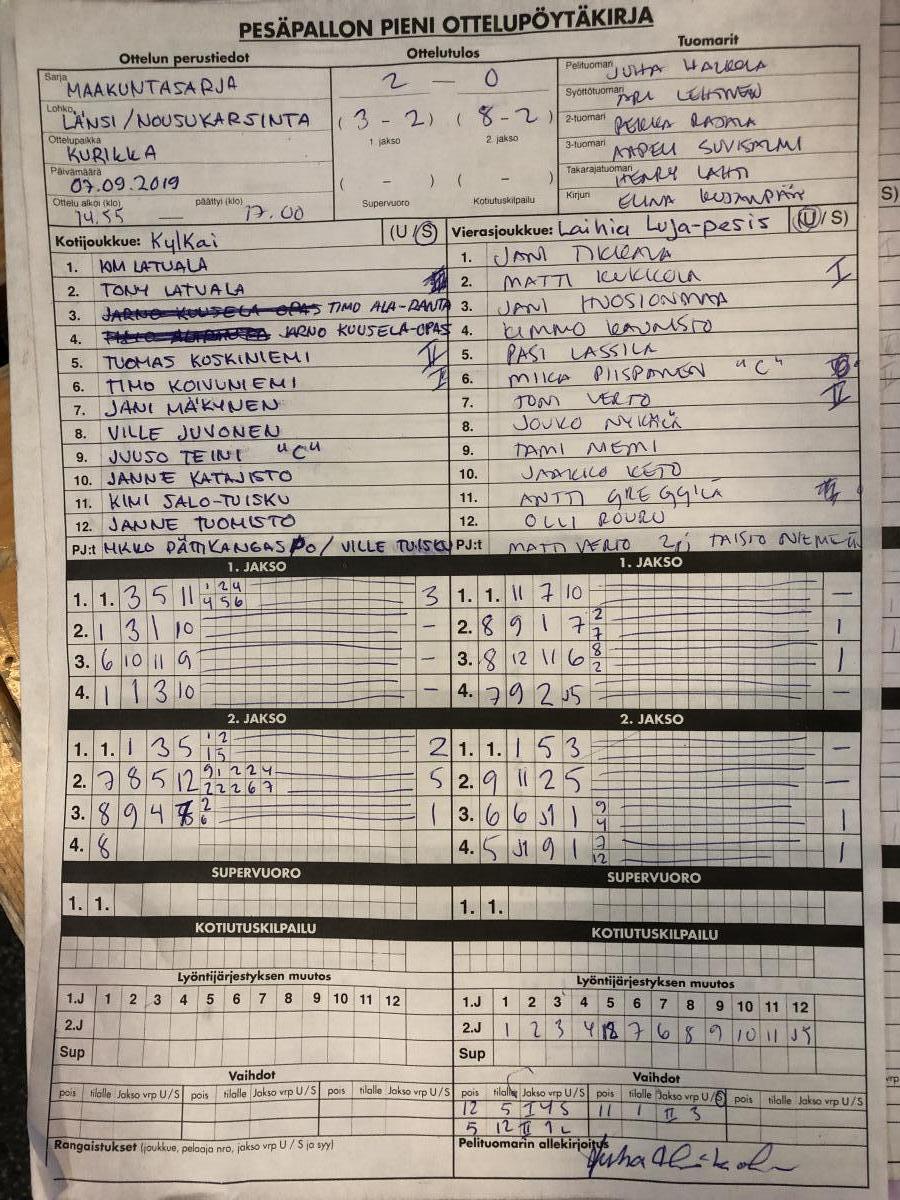 PESÄPALLON PIENI OTTELUPÖYTÄKIRJA
Ottelun perustiedot Ottelutulos Tuomarit
Sarja MAAKUNTASARJA
Lohko LÄNSI/NOUSUKARSINTA
Ottelupaikka KURIKKA
Päivämäärä 07.09.2019
Ottelu alkoi (klo) 14.55 — päättyi (klo) 17.00
2 — 0
(3 - 2) (8 - 2)
1. jakso 2. jakso
( - ) ( - )
Supervuoro Kotiutuskilpailu
Pelituomari JUHA
Syöttötuomari ARI LEHTINEN
2-tuomari PEKKA RAJALA
3-tuomari
Takarajatuomari HENRY LAHTI
Kirjuri ELINA
Kotijoukkue: KylKai (U/S)
1. KIM LATVALA
2. TONY LATVALA
3. TIMO ALA-RANTA
4. JARNO KUUSELA-OPAS
5. TUOMAS KOSKINIEMI II
6. TIMO KOIVUNIEMI I
7. JANI MÄKYNEN
8. VILLE JUVONEN
9. JUUSO TEINI "C"
10. JANNE KATAJISTO
11. KIMI SALO-TUISKU
12. JANNE TUOMISTO
PJ:t MIKKO PÄTIKANGAS PO / VILLE TUISKU
Vierasjoukkue: Laihia Luja-pesis (U/S)
1. JANI
2. MATTI KUKKOLA I
3. JANI
4. KIMMO
5. PASI LASSILA
6. MIIKA PIISPANEN "C"
7. JONI VERTO II
8. JOUKO
9. TAMI NIEMI
10. JAAKKO KETO
11. ANTTI
12. OLLI ROUKU
PJ:t MATTI VERTO 2, TAISTO
1. JAKSO
1. 1. 3 5 11 1 2 4 3
4 5 6
2. 1 3 1 10 -
3. 6 10 11 9 -
4. 1 1 3 10 -
1. JAKSO
1. 1. 11 7 10 -
2. 8 9 1 7 2 1
7
3. 8 12 11 6 8 1
2
4. 7 9 2 J5 -
2. JAKSO
1. 1. 1 3 5 1 2 2
1 5
2. 7 8 5 12 9 1 2 2 4 5
2 2 2 6 7
3. 8 9 4 2 1
6
4. 8
2. JAKSO
1. 1. 1 5 3 -
2. 9 11 2 5 -
3. 6 6 J1 1 9 1
4
4. 5 J1 9 1 7 1
12
SUPERVUORO
1. 1.
SUPERVUORO
1. 1.
KOTIUTUSKILPAILU
KOTIUTUSKILPAILU
Lyöntijärjestyksen muutos
1.J 1 2 3 4 5 6 7 8 9 10 11 12
2.J
Sup
Lyöntijärjestyksen muutos
1.J 1 2 3 4 5 6 7 8 9 10 11 12
2.J 1 2 3 4 12 7 6 8 9 10 11 J5
Sup
Vaihdot
pois tilalle Jakso vrp U/S pois tilalle Jakso vrp U/S pois tilalle Jakso vrp U/S
Vaihdot
pois tilalle Jakso vrp U/S pois tilalle Jakso vrp U/S pois tilalle Jakso vrp U/S
12 5 I 4 S 11 1 II 3
5 12 II
Rangaistukset (joukkue, pelaaja nro, jakso vrp U/S ja syy)
Pelituomarin allekirjoitus